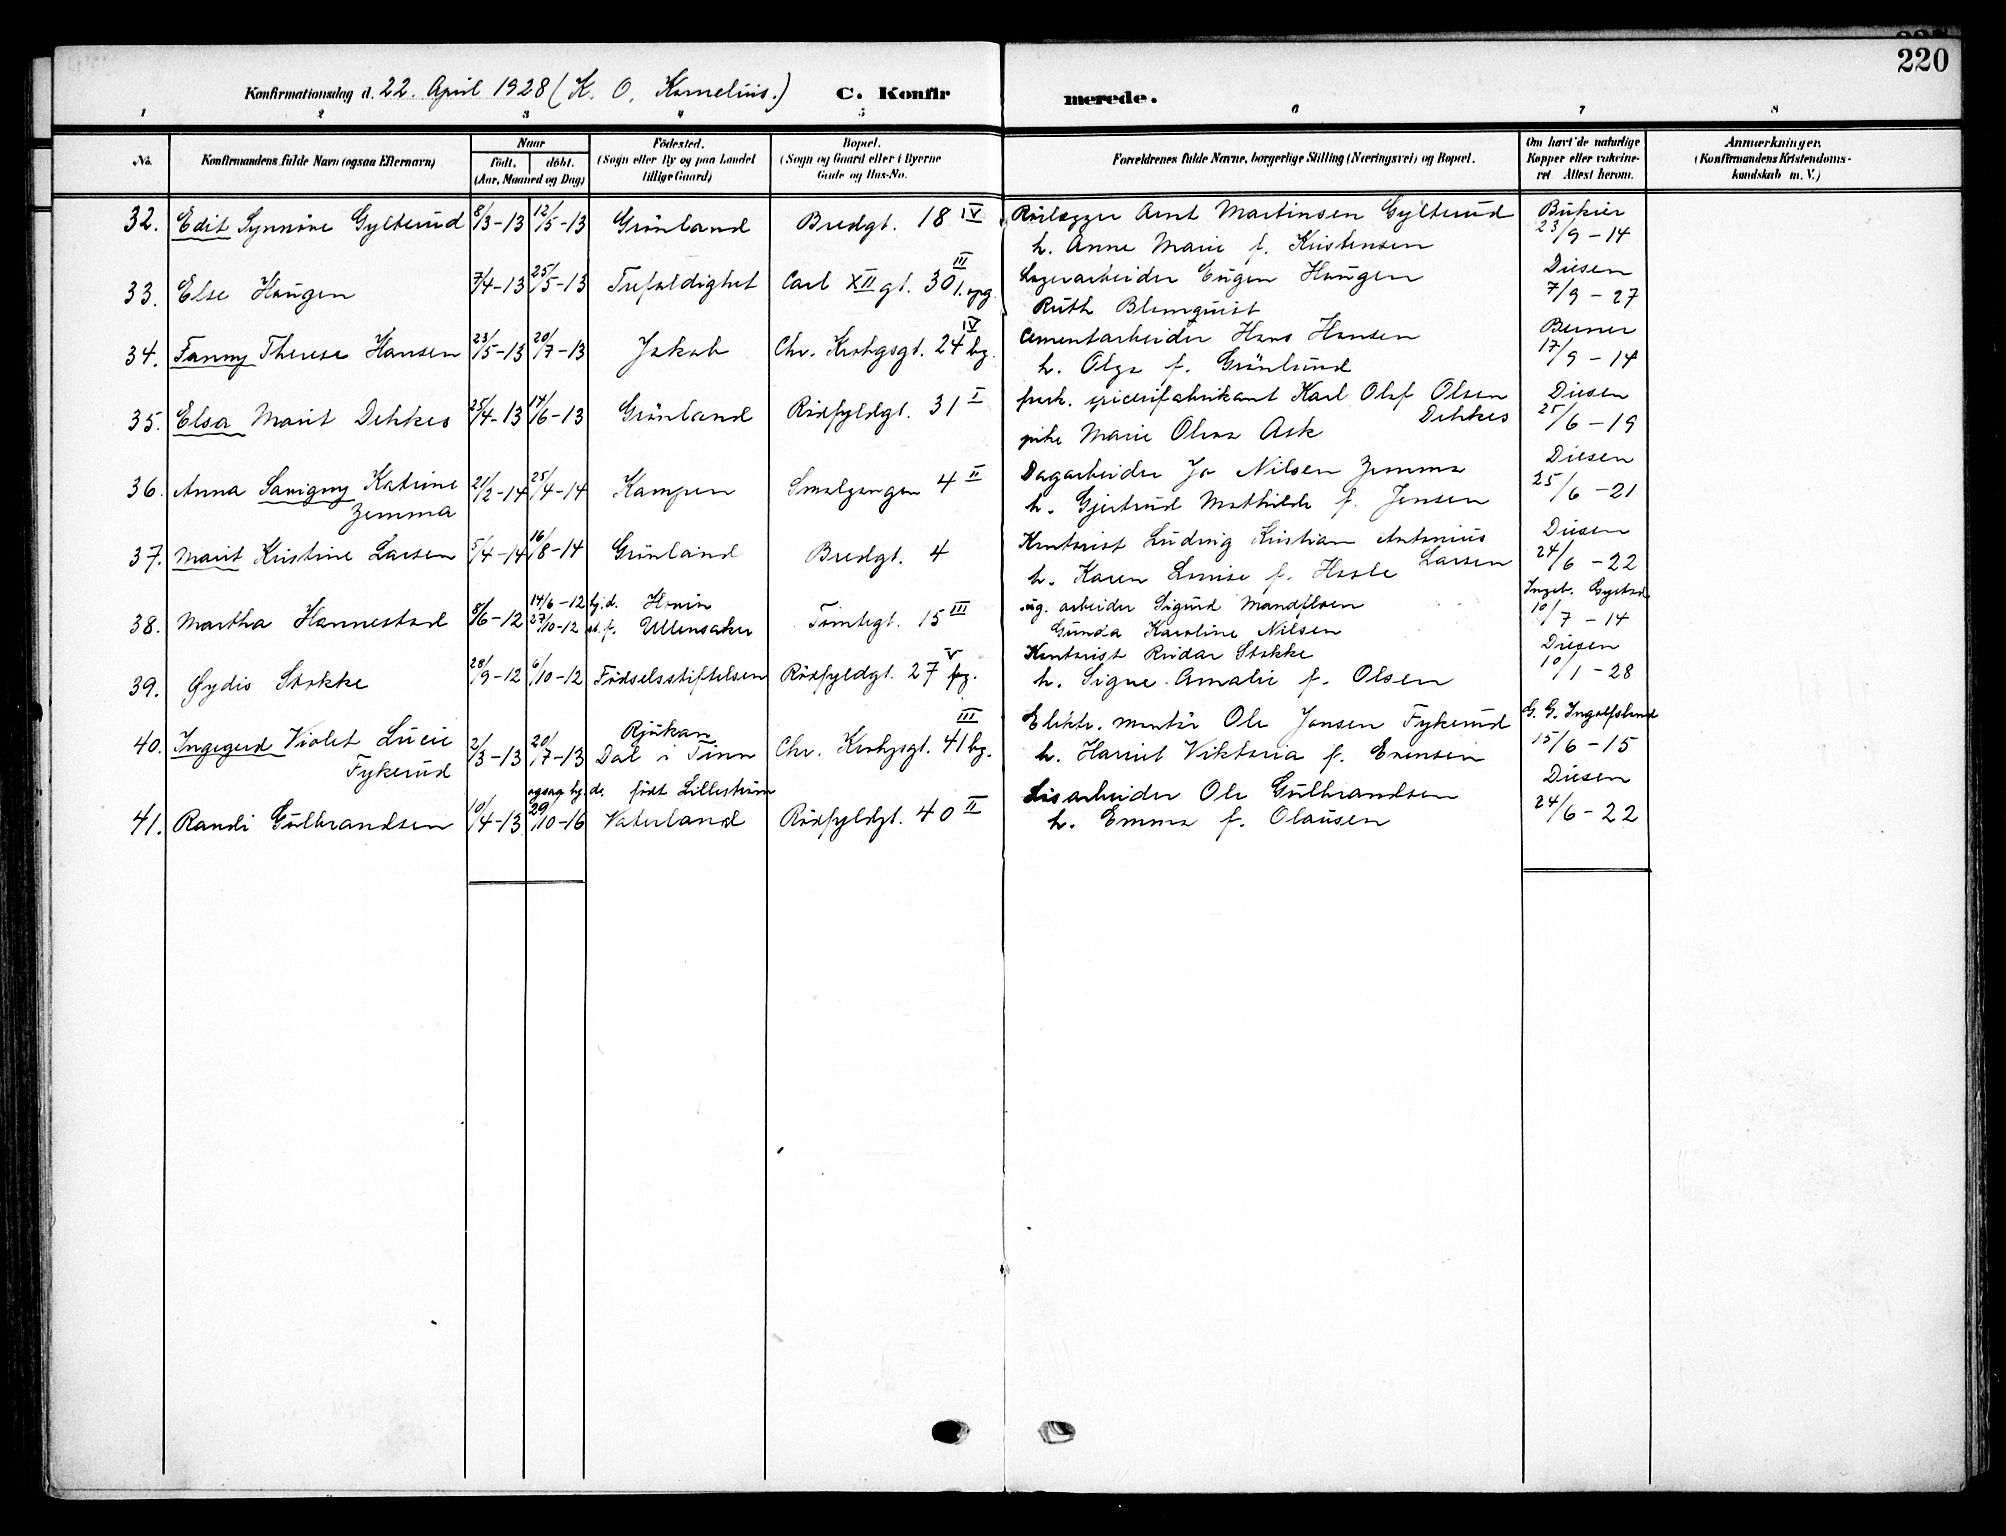 220
Konfirmationsdag d. 22. April 1928 (K. O. Kornelius.) C. Konfirmerede.
1 2 3 4 5 6 7 8
No. Konfirmandens fulde Navn (ogsaa Efternavn) Naar født. døbt. (Aar, Maaned og Dag) Fødested. (Sogn eller By og paa Landet tillige Gaard) Bopæl. (Sogn og Gaard eller i Byerne Gade og Hus-No. Forældrenes fulde Navne, borgerlige Stilling (Næringsvei) og Bopæl. Om havt de naturlige Kopper eller vaccineret Attest herom. Anmærkninger. (Konfirmandens Kristendomskundskab m. V.)
32. Edit Synnöve Gylterud 8/3-13 12/5-13 Grönland Bredgt. 18 IV Rörlegger Arnt Martinsen Gylterud
h. Anne Marie f. Kristensen 23/9-14
33. Else Haugen 7/4-13 25/5-13 Trefoldighet Carl XII gt. 30 III 1. opg. Lagerarbeider Eugen Haugen Diesen
Ruth Blomquist 7/9-27
34. Fanny Therese Hansen 23/5-13 20/7-13 Jakob Chr. Krohgsgt. 24 IV bg. Cementarbeider Hans Hansen
h. Olga f. Grönlund 17/9-14
35. Elsa Marit Dehkes 25/4-13 14/6-13 Grönland Rödfyldgt. 31 I Karl Olaf Olsen Dehkes Diesen
pike Marie Olava Ask 25/6-19
36. Anna Savigny Katrine Zemma 21/2-14 25/4-14 Kampen Smalgangen 4 II Dagarbeider Jo Nilsen Zemma Diesen
h. Gjertrud Mathilde f. Jensen 25/6-21
37. Marit Kristine Larsen 5/4-14 16/8-14 Grönland Bredgt. 4 Kontorist Ludvig Kristian Antonius Larsen Diesen
h. Karen Louise f. Hasle 24/6-22
38. Martha Hannestad 8/6-12 14/6-12 hj.d. 27/10-12 st. f. Hovin Ullensaker Tomtegt. 15 III ug. arbeider Sigurd Mandfloen
Gunda Karoline Nilsen 10/7-14
39. Øydis Stokke 28/9-12 6/10-12 Födselsstiftelsen Rödfyldgt. 27 V fg. Kontorist Reidar Stokke Diesen
h. Signe Amalie f. Olsen 10/1-28
40. Ingegerd Violet Lucie Fykerud 2/3-13 20/7-13 Rjukan Dal i Tinn Chr. Krohgsgt. 41 III bg. Elektr. montör Ole Jonsen Fykerud G. G. Ingolfsland
h. Harriet Viktoria f. Evensen 15/6-15
41. Randi Gulbrandsen 10/4-13 ogsaa hj. d. födt Lilleström 29/10-16 Vaterland Rödfyldgt. 40 II Ole Gulbrandsen Diesen
h. Emma f. Olausen 24/6-22